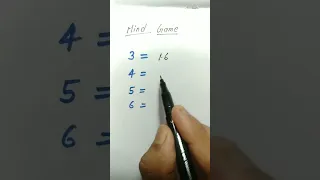 Mind Game
3 = 16
4 =
5 =
6 =